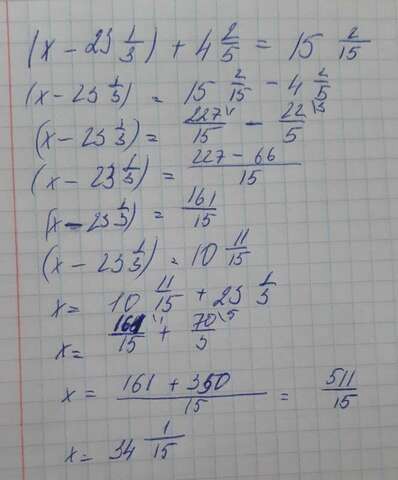 (x - 23 1/3) + 4 2/5 = 15 2/15
(x - 23 1/3) = 15 2/15 - 4 2/5
(x - 23 1/3) = 227/15 \1 - 22/5 \3
(x - 23 1/3) = 227 - 66/15
(x - 23 1/3) = 161/15
(x - 23 1/3) = 10 11/15
x = 10 11/15 + 23 1/3
x = 161/15 \1 + 70/3 \5
x = 161 + 350/15 = 511/15
x = 34 1/15